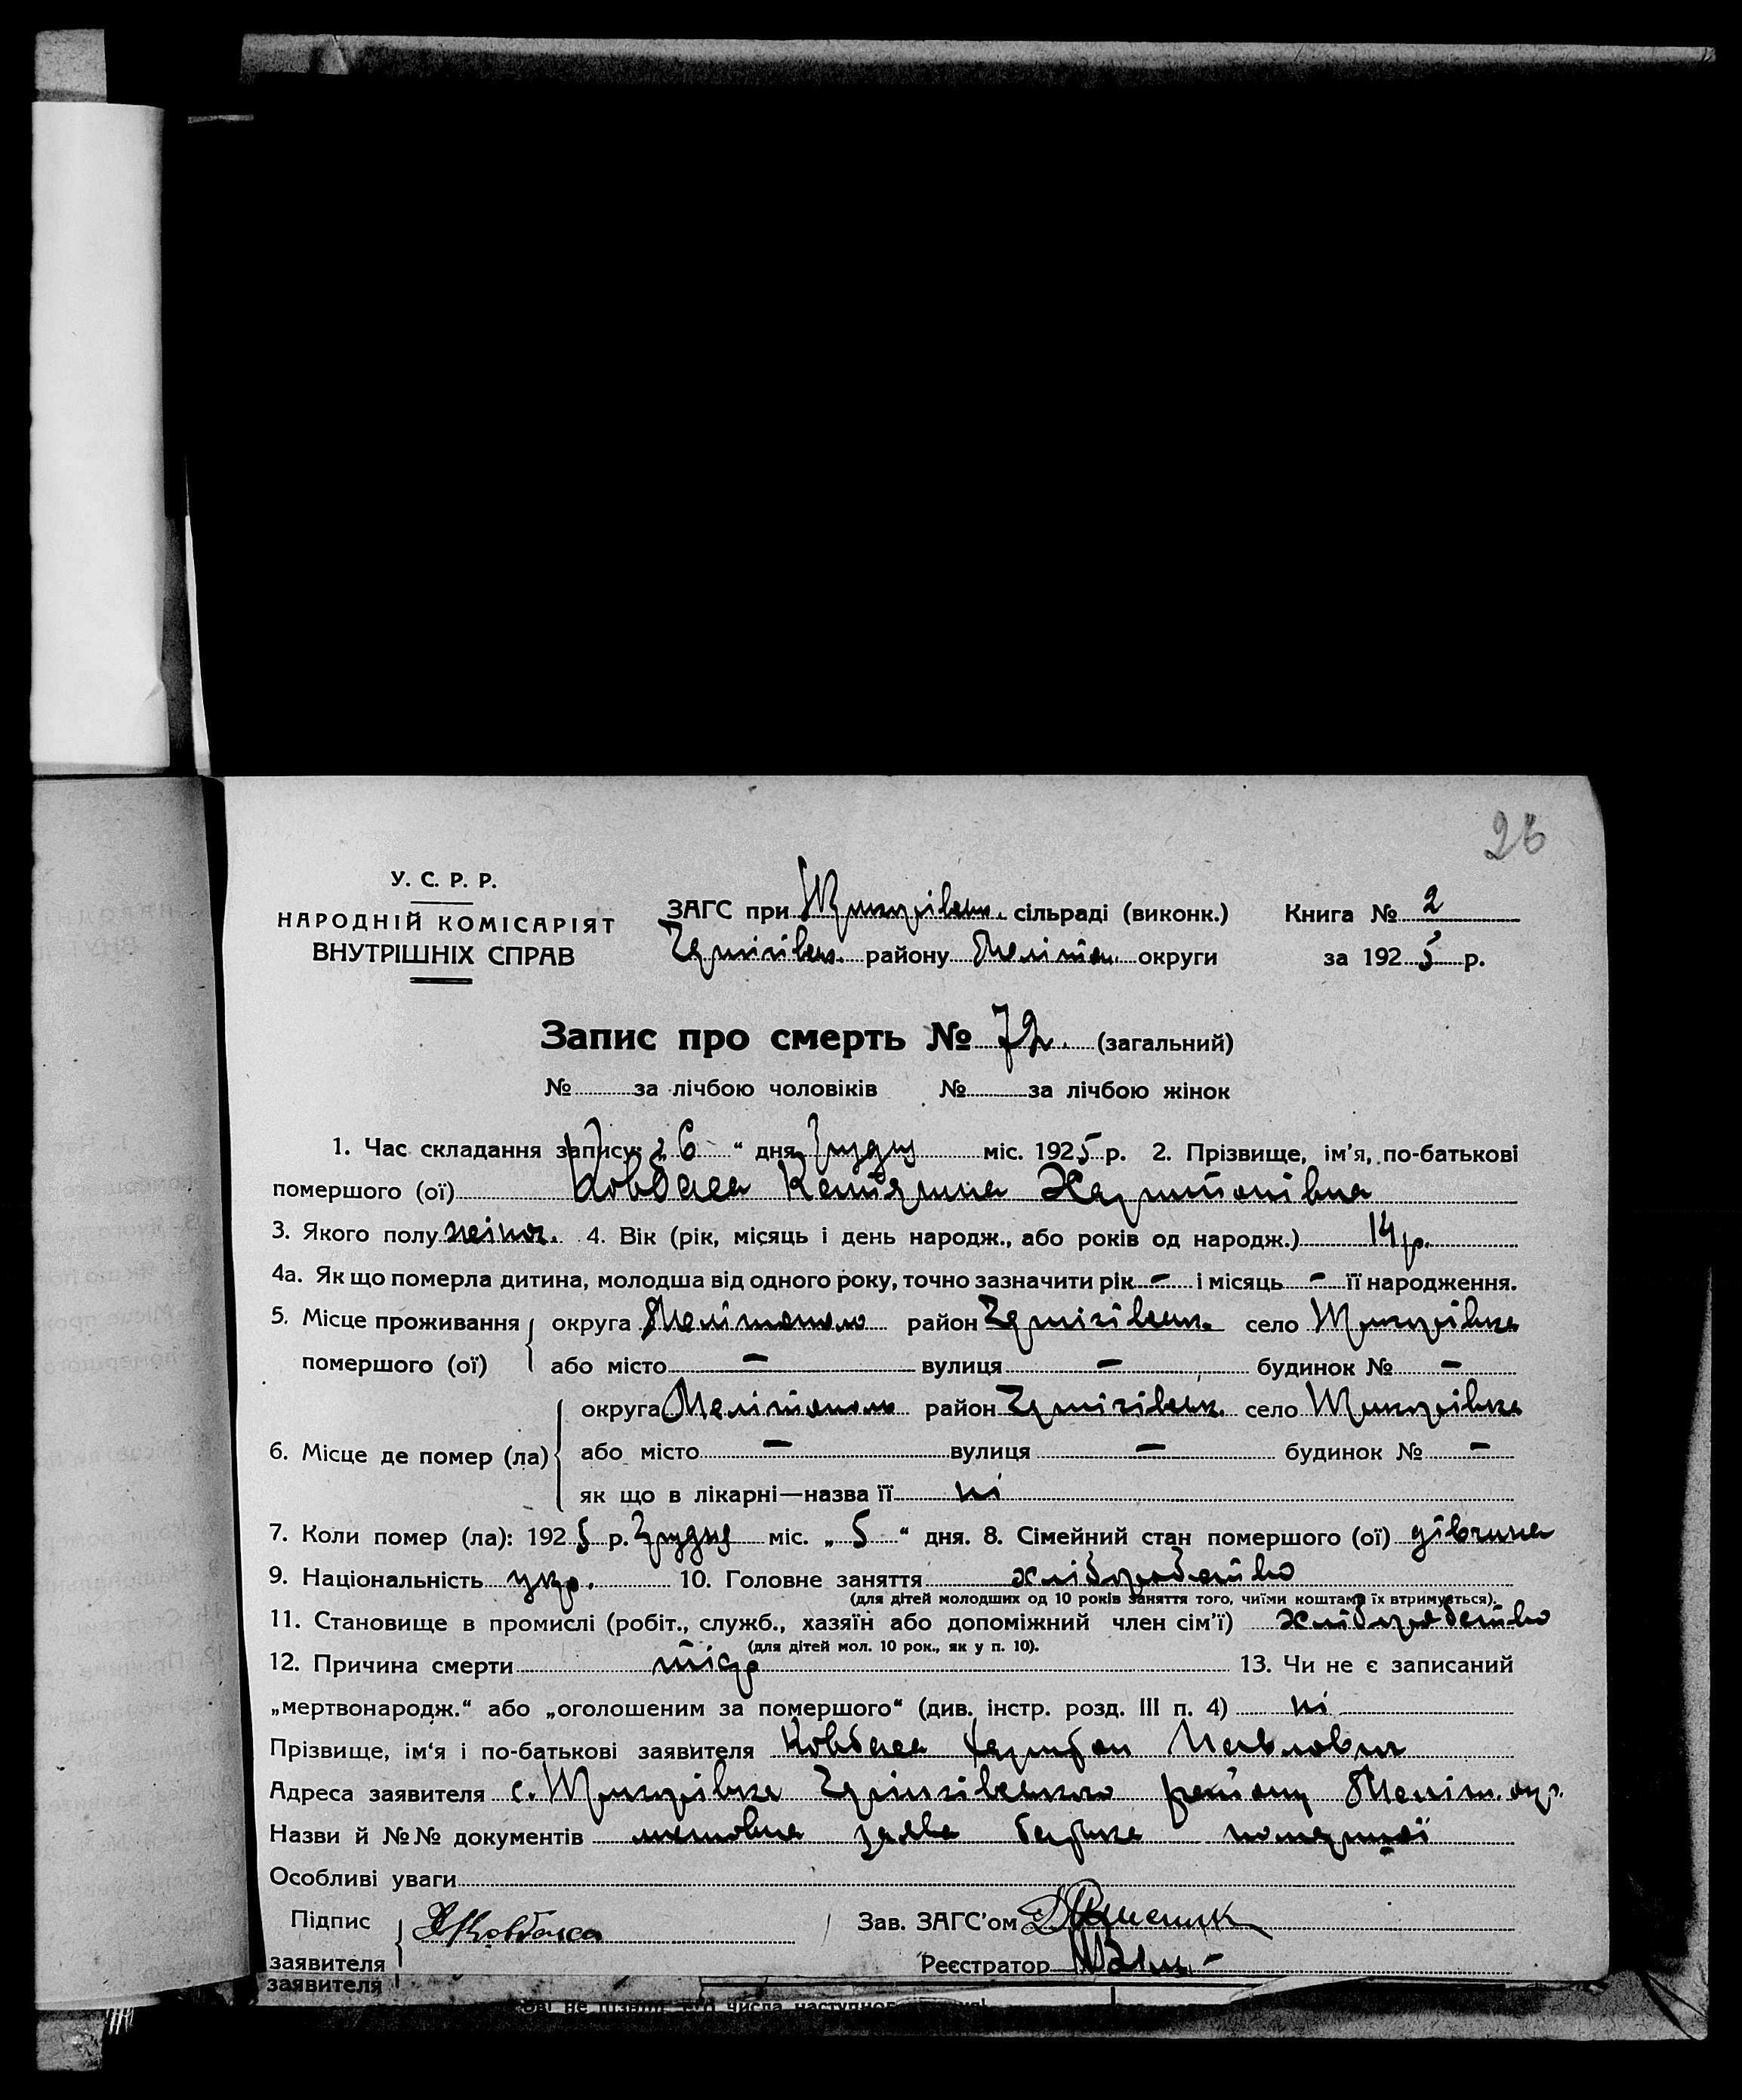 26
У. С. Р. Р.
НАРОДНІЙ КОМІСАРІЯТ
ВНУТРІШНІХ СПРАВ
ЗАГС при сільраді (виконк.) Книга № 2
Чернігівськ. району Мелітоп. округи за 1925 р.
Запис про смерть № 72. (загальний)
№ за лічбою чоловіків № за лічбою жінок
1. Час складання запису: „ 6 “ дня Грудня міс. 1925 р. 2. Прізвище, ім’я, по-батькові
помершого (ої) Ковбаса Катерина Харитонівна
3. Якого полу жіноч. 4. Вік (рік, місяць і день народж., або років од народж.) 14 р.
4а. Як що померла дитина, молодша від одного року, точно зазначити рік – і місяць – її народження.
5. Місце проживання округа район Чернігівськ. село
помершого (ої) або місто – вулиця – будинок № –
округа район Чернігівськ. село
6. Місце де помер (ла) або місто – вулиця – будинок № –
як що в лікарні—назва її ні
7. Коли помер (ла): 1925 р. Грудня міс. „ 5 “ дня. 8. Сімейний стан помершого (ої) дівчина
9. Національність укр. 10. Головне заняття хліборобство
(для дітей молодших од 10 років заняття того, чиїми коштами їх втримується).
11. Становище в промислі (робіт., служб., хазяїн або допоміжний член сім’ї) хліборобство
(для дітей мол. 10 рок., як у п. 10).
12. Причина смерти 13. Чи не є записаний
„мертвонародж.“ або „оголошеним за помершого“ (див. інстр. розд. III п. 4) ні
Прізвище, ім‘я і по-батькові заявителя Ковбаса Харитон Павлович
Адреса заявителя с. Чернігівського району Меліт. окр.
Назви й №№ документів заява батька помершої
Особливі уваги
Підпис Х Ковбаса Зав. ЗАГС’ом
заявителя Реєстратор
заявителя